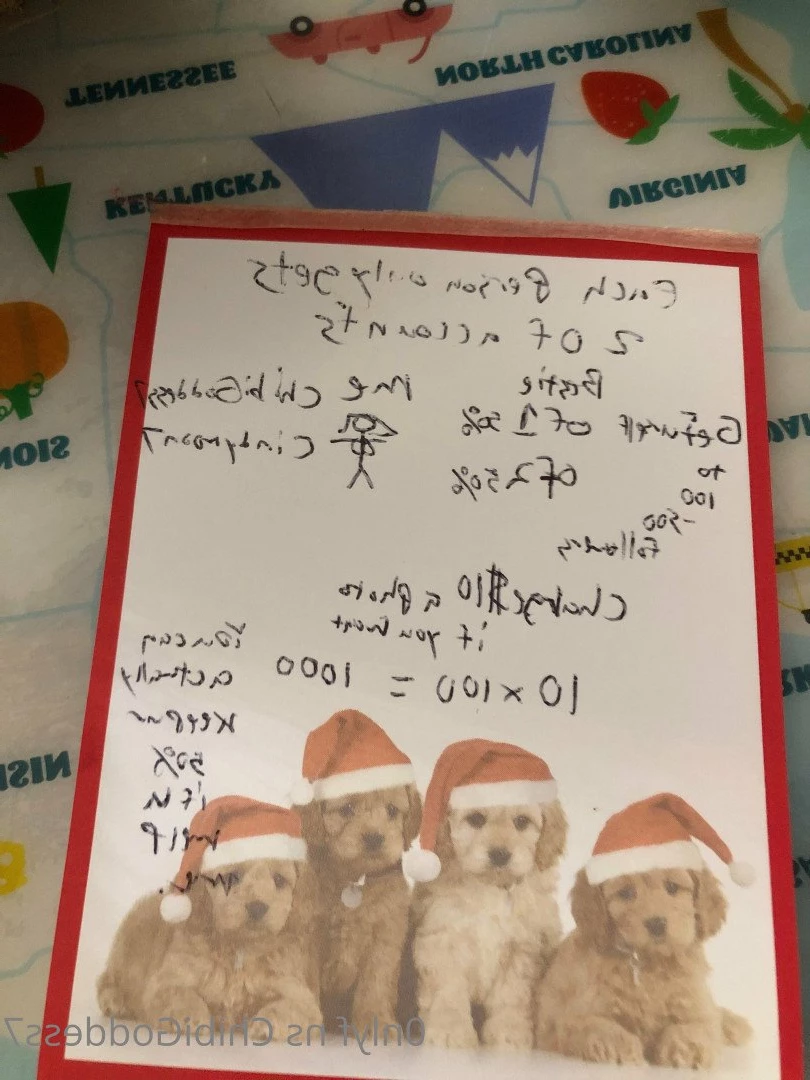 TENNESSEE
NORTH CAROLINA
KENTUCKY
VIRGINIA
Each Person only gets
2 of accounts
Bestie
me ChibiGoddess7
of 1 50%
Cindymoon7
to
100
-500
Followers
of 2 50%
Charge $10 a photo
if you want
10 x 100 = 1000
You can
actually
keep ur
50%
if u
help
me.
Onlyf ns ChibiGoddess7